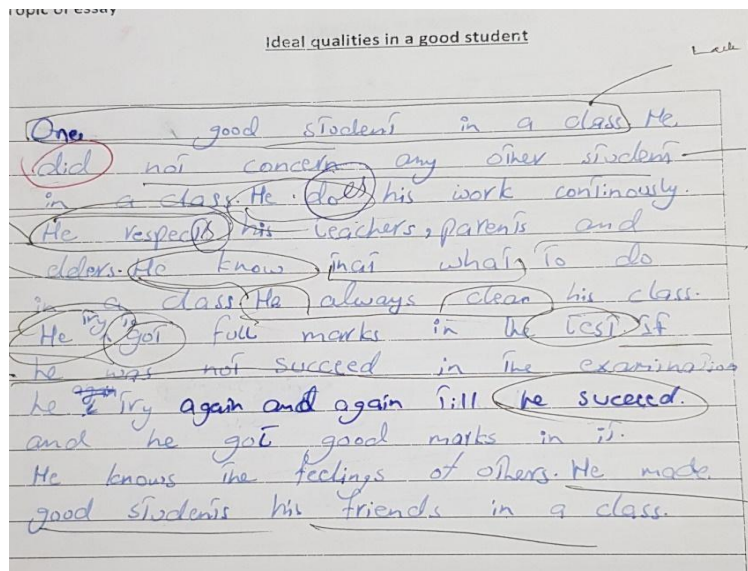 Topic of essay
Ideal qualities in a good student
One good student in a class He
did not concern any other student
in a class. He does his work continously.
He respects his teachers, parents and
elders. He know that what To do
in a class. He always clean his class.
He try to got full marks in the test. If
he was not succeed in the examination
he try again and again Till he suceed.
and he got good marks in it.
He knows the feelings of others. He made
good students his friends in a class.